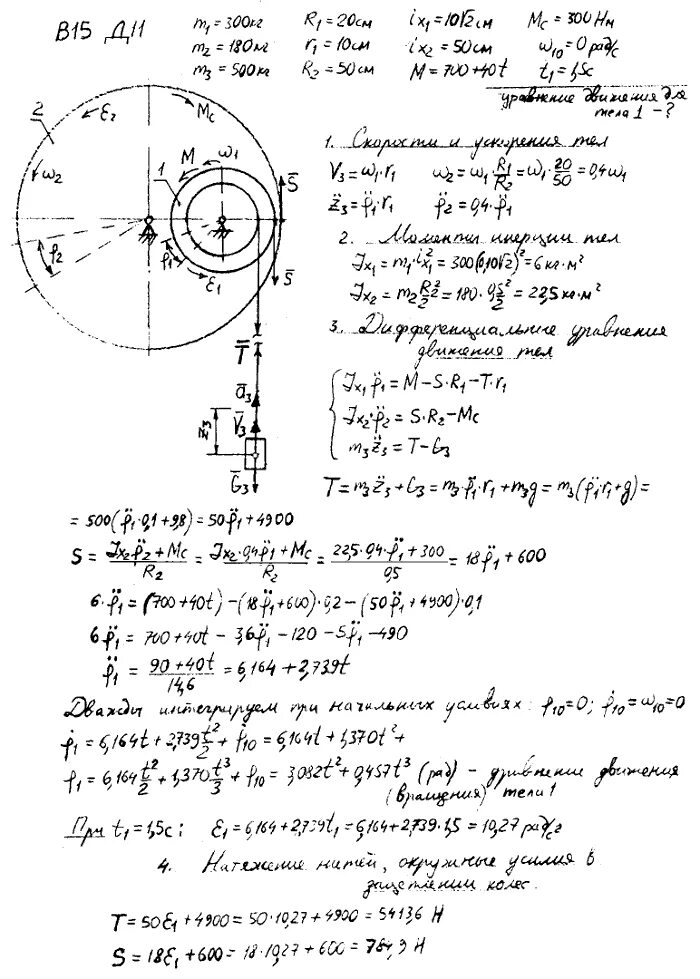 В15 Д11
m₁ = 300кг R₁ = 20см iх₁ = 10√2см Mc = 300 Нм
m₂ = 180кг r₁ = 10см iх₂ = 50см ω₁₀ = 0 рад/с
m₃ = 500кг R₂ = 50см M = 700+40t t₁ = 1,5с
уравнение движения для
тела 1 – ?
2 ε₂ Mc
ω₂ M ω₁ 1 S̄
φ₂ φ₁ ε₁ S̄
T̄
ā₃
z₃ V̄₃
Ḡ₃
1. Скорости и ускорения тел
V₃ = ω₁·r₁ ω₂ = ω₁·R₁/R₂ = ω₁·20/50 = 0,4ω₁
z̈₃ = φ̈₁·r₁ φ̈₂ = 0,4·φ̈₁
2. Моменты инерции тел
Jx₁ = m₁·i²x₁ = 300(0,10√2)² = 6 кг·м²
Jx₂ = m₂R₂²/2 = 180·0,5²/2 = 22,5 кг·м²
3. Дифференциальные уравнения
движения тел
Jx₁φ̈₁ = M – S·R₁ – T·r₁
Jx₂·φ̈₂ = S·R₂ – Mc
m₃z̈₃ = T – G₃
T = m₃z̈₃ + G₃ = m₃·φ̈₁·r₁ + m₃g = m₃(φ̈₁·r₁+g) =
= 500(φ̈₁·0,1 + 9,8) = 50φ̈₁ + 4900
S = (Jx₂φ̈₂ + Mc)/R₂ = (Jx₂·0,4φ̈₁ + Mc)/R₂ = (22,5·0,4·φ̈₁ + 300)/0,5 = 18φ̈₁ + 600
6·φ̈₁ = (700+40t) – (18φ̈₁+600)·0,2 – (50φ̈₁+4900)·0,1
6φ̈₁ = 700+40t – 3,6φ̈₁ – 120 – 5φ̈₁ – 490
φ̈₁ = (90+40t)/14,6 = 6,164 + 2,739t
Дважды интегрируем при начальных условиях: φ₁₀=0; φ̇₁₀=ω₁₀=0
φ̇₁ = 6,164t + 2,739t²/2 + φ̇₁₀ = 6,164t + 1,370t² +
φ₁ = 6,164t²/2 + 1,370t³/3 + φ₁₀ = 3,082t² + 0,457t³ (рад) – уравнение движения
(вращения) тела 1
При t₁ = 1,5с: ε₁ = 6,164 + 2,739t₁ = 6,164 + 2,739·1,5 = 10,27 рад/с²
4. Натяжение нитей, окружные усилия в
зацеплении колес.
T = 50ε₁ + 4900 = 50·10,27 + 4900 = 5413,6 Н
S = 18ε₁ + 600 = 18·10,27 + 600 = 784,9 Н